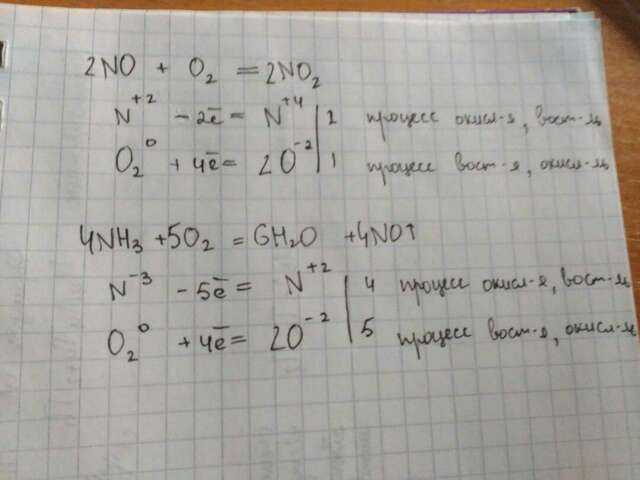 2NO + O₂ = 2NO₂
N⁺² - 2ē = N⁺⁴ | 2 процесс окисл-я, вост-ль
O₂⁰ + 4ē = 2O⁻² | 1 процесс вост-я, окисл-ль
4NH₃ + 5O₂ = 6H₂O + 4NO↑
N⁻³ - 5ē = N⁺² | 4 процесс окисл-я, вост-ль
O₂⁰ + 4ē = 2O⁻² | 5 процесс вост-я, окисл-ль